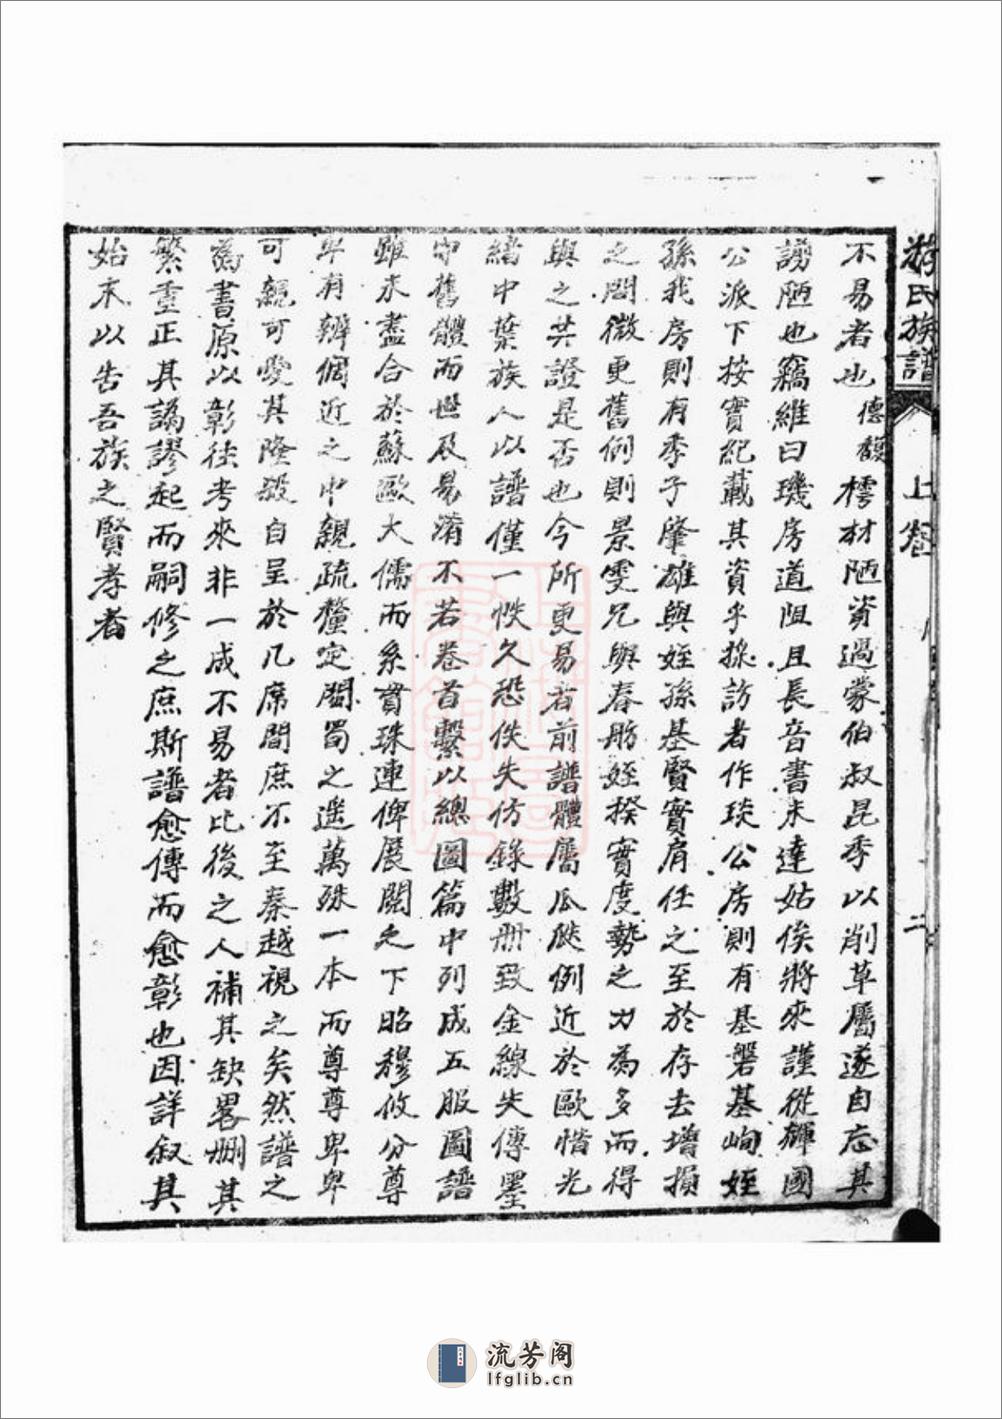 游氏族譜
上卷
二
不易者也德馥樗材陋資過蒙伯叔昆季以削草屬遂自忘其
謭陋也竊維曰璣房道阻且長音書未達姑俟將來謹從輝國
公派下按實紀載其資乎採訪者作琰公房則有基磐基峋姪
孫我房則有季子肇雄與姪孫基賢實肩任之至於存去增損
之間微更舊例則景雯兄與春舫姪揆實度勢之力為多而得
與之共證是否也今所更易者前譜體屬瓜瓞例近於歐惜光
緒中葉族人以譜僅一帙久恐佚失仿錄數册致金線失傳墨
守舊體而世及易淆不若卷首繫以總圖篇中列成五服圖譜
雖未盡合於蘇歐大儒而系貫珠連俾展閱之下昭穆攸分尊
卑有辨個近之中親疏釐定閩蜀之遙萬殊一本而尊尊卑卑
可親可愛其隆殺自呈於几席間庶不至秦越視之矣然譜之
為書原以彰往考來非一成不易者比後之人補其缺畧刪其
繁重正其譌謬起而嗣修之庶斯譜愈傳而愈彰也因詳叙其
始末以告吾族之賢孝者
流芳阁
lfglib.cn